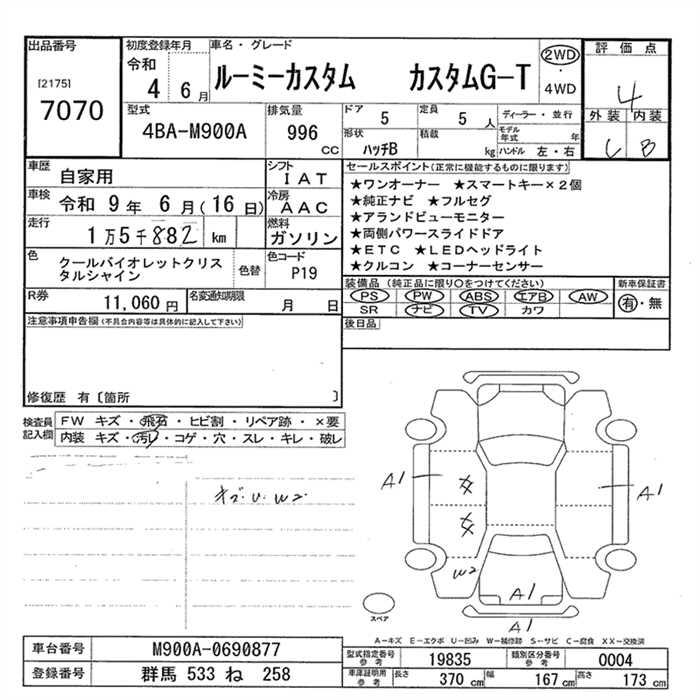 出品番号
[2175]
7070
初度登録年月
令和
4 6月
車名・グレード
ルーミーカスタム カスタムG-T
2WD
・
4WD
評価点
4
外装 内装
C B
型式
4BA-M900A
排気量
996
cc
ドア
5
定員
5 人
ディーラー・並行
形状
ハッチB
積載
kg
モデル年式 年
ハンドル 左・右
車歴
自家用
シフト
IAT
車検 令和 9年 6月(16日)
冷房
AAC
走行
1万5千882 km
燃料
ガソリン
色
クールバイオレットクリス
タルシャイン
色替
色コード
P19
R券 11,060円
名変通知期限 月 日
セールスポイント(正常に機能するものに限ります)
★ワンオーナー ★スマートキー×2個
★純正ナビ ★フルセグ
★アランドビューモニター
★両側パワースライドドア
★ETC ★LEDヘッドライト
★クルコン ★コーナーセンサー
装備品(純正品に限り○をつけてください)
PS PW ABS エアB AW
SR ナビ TV カワ
新車保証書
有・無
後日品
注意事項申告欄(不具合内容等は具体的に記入して下さい)
修復歴 有〔箇所 〕
検査員
記入欄
FW キズ・飛石・ヒビ割・リペア跡・×要
内装 キズ・汚レ・コゲ・穴・スレ・キレ・破レ
キズ・U・W2
A1
A1
W2
A1
A1
スペア
A-キズ E-エクボ U-凹み W-補修跡 S-サビ C-腐食 XX-交換済
車台番号 M900A-0690877
登録番号 群馬 533 ね 258
型式指定番号
参考
19835
類別区分番号
参考
0004
車庫証明用
参考
長さ 370 cm
幅 167 cm
高さ 173 cm